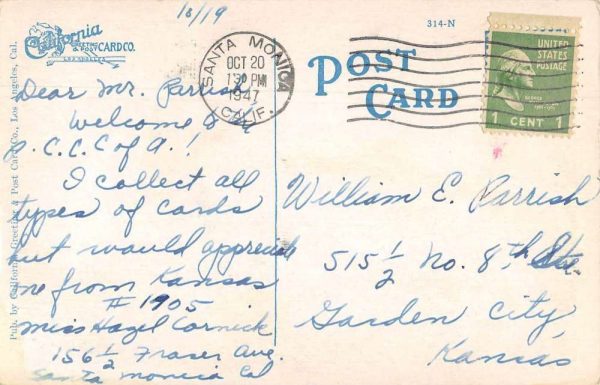 10/19
California
GREETING & POST CARD CO.
LOS ANGELES
314-N
SANTA MONICA
OCT 20
130 PM
1947
CALIF.
POST
CARD
UNITED
STATES
POSTAGE
1 CENT 1
Pub. by California Greeting & Post Card Co., Los Angeles, Cal.
Dear Mr. Parrish,
Welcome to
P.C.C. of A.!
I collect all
types of cards
but would appreciate
one from Kansas
#1905
Miss Hazel Cornick
156 1/2 Fraser Ave.
Santa Monica Cal
William E. Parrish
515 1/2 No. 8th Ste.
Garden City,
Kansas